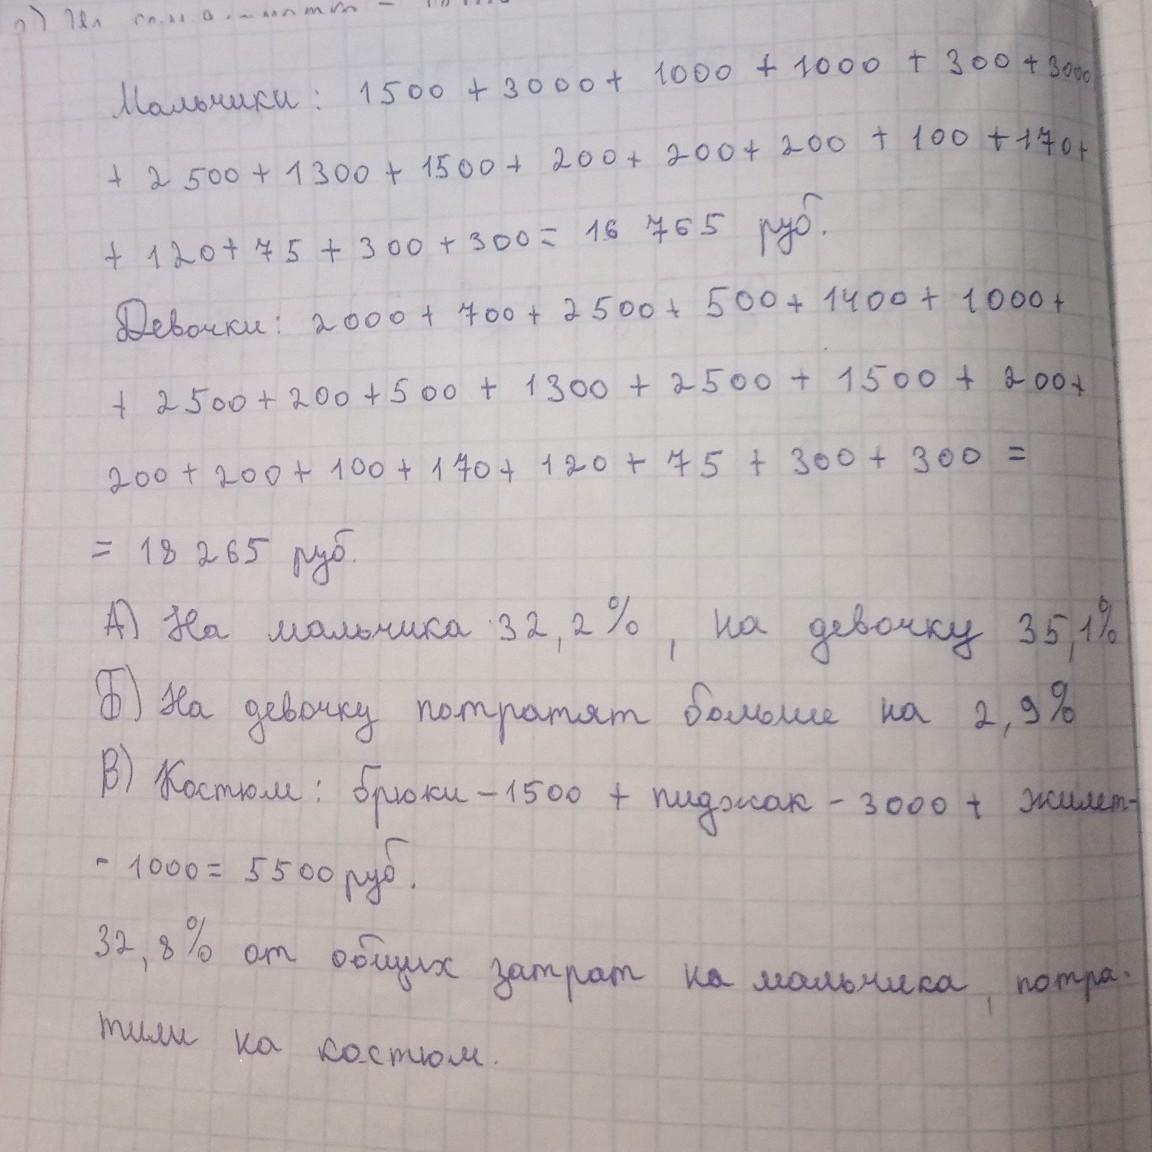 Мальчики: 1500 + 3000 + 1000 + 1000 + 300 + 3000
+ 2500 + 1300 + 1500 + 200 + 200 + 200 + 100 + 170 +
+ 120 + 75 + 300 + 300 = 16 765 руб.
Девочки: 2000 + 700 + 2500 + 500 + 1400 + 1000 +
+ 2500 + 200 + 500 + 1300 + 2500 + 1500 + 200 +
200 + 200 + 100 + 170 + 120 + 75 + 300 + 300 =
= 18 265 руб.
А) На мальчика 32,2%, на девочку 35,1%
Б) На девочку потратят больше на 2,9%
В) Костюм: брюки - 1500 + пиджак - 3000 + жилет-
- 1000 = 5500 руб.
32,8% от общих затрат на мальчика, потра-
тили на костюм.